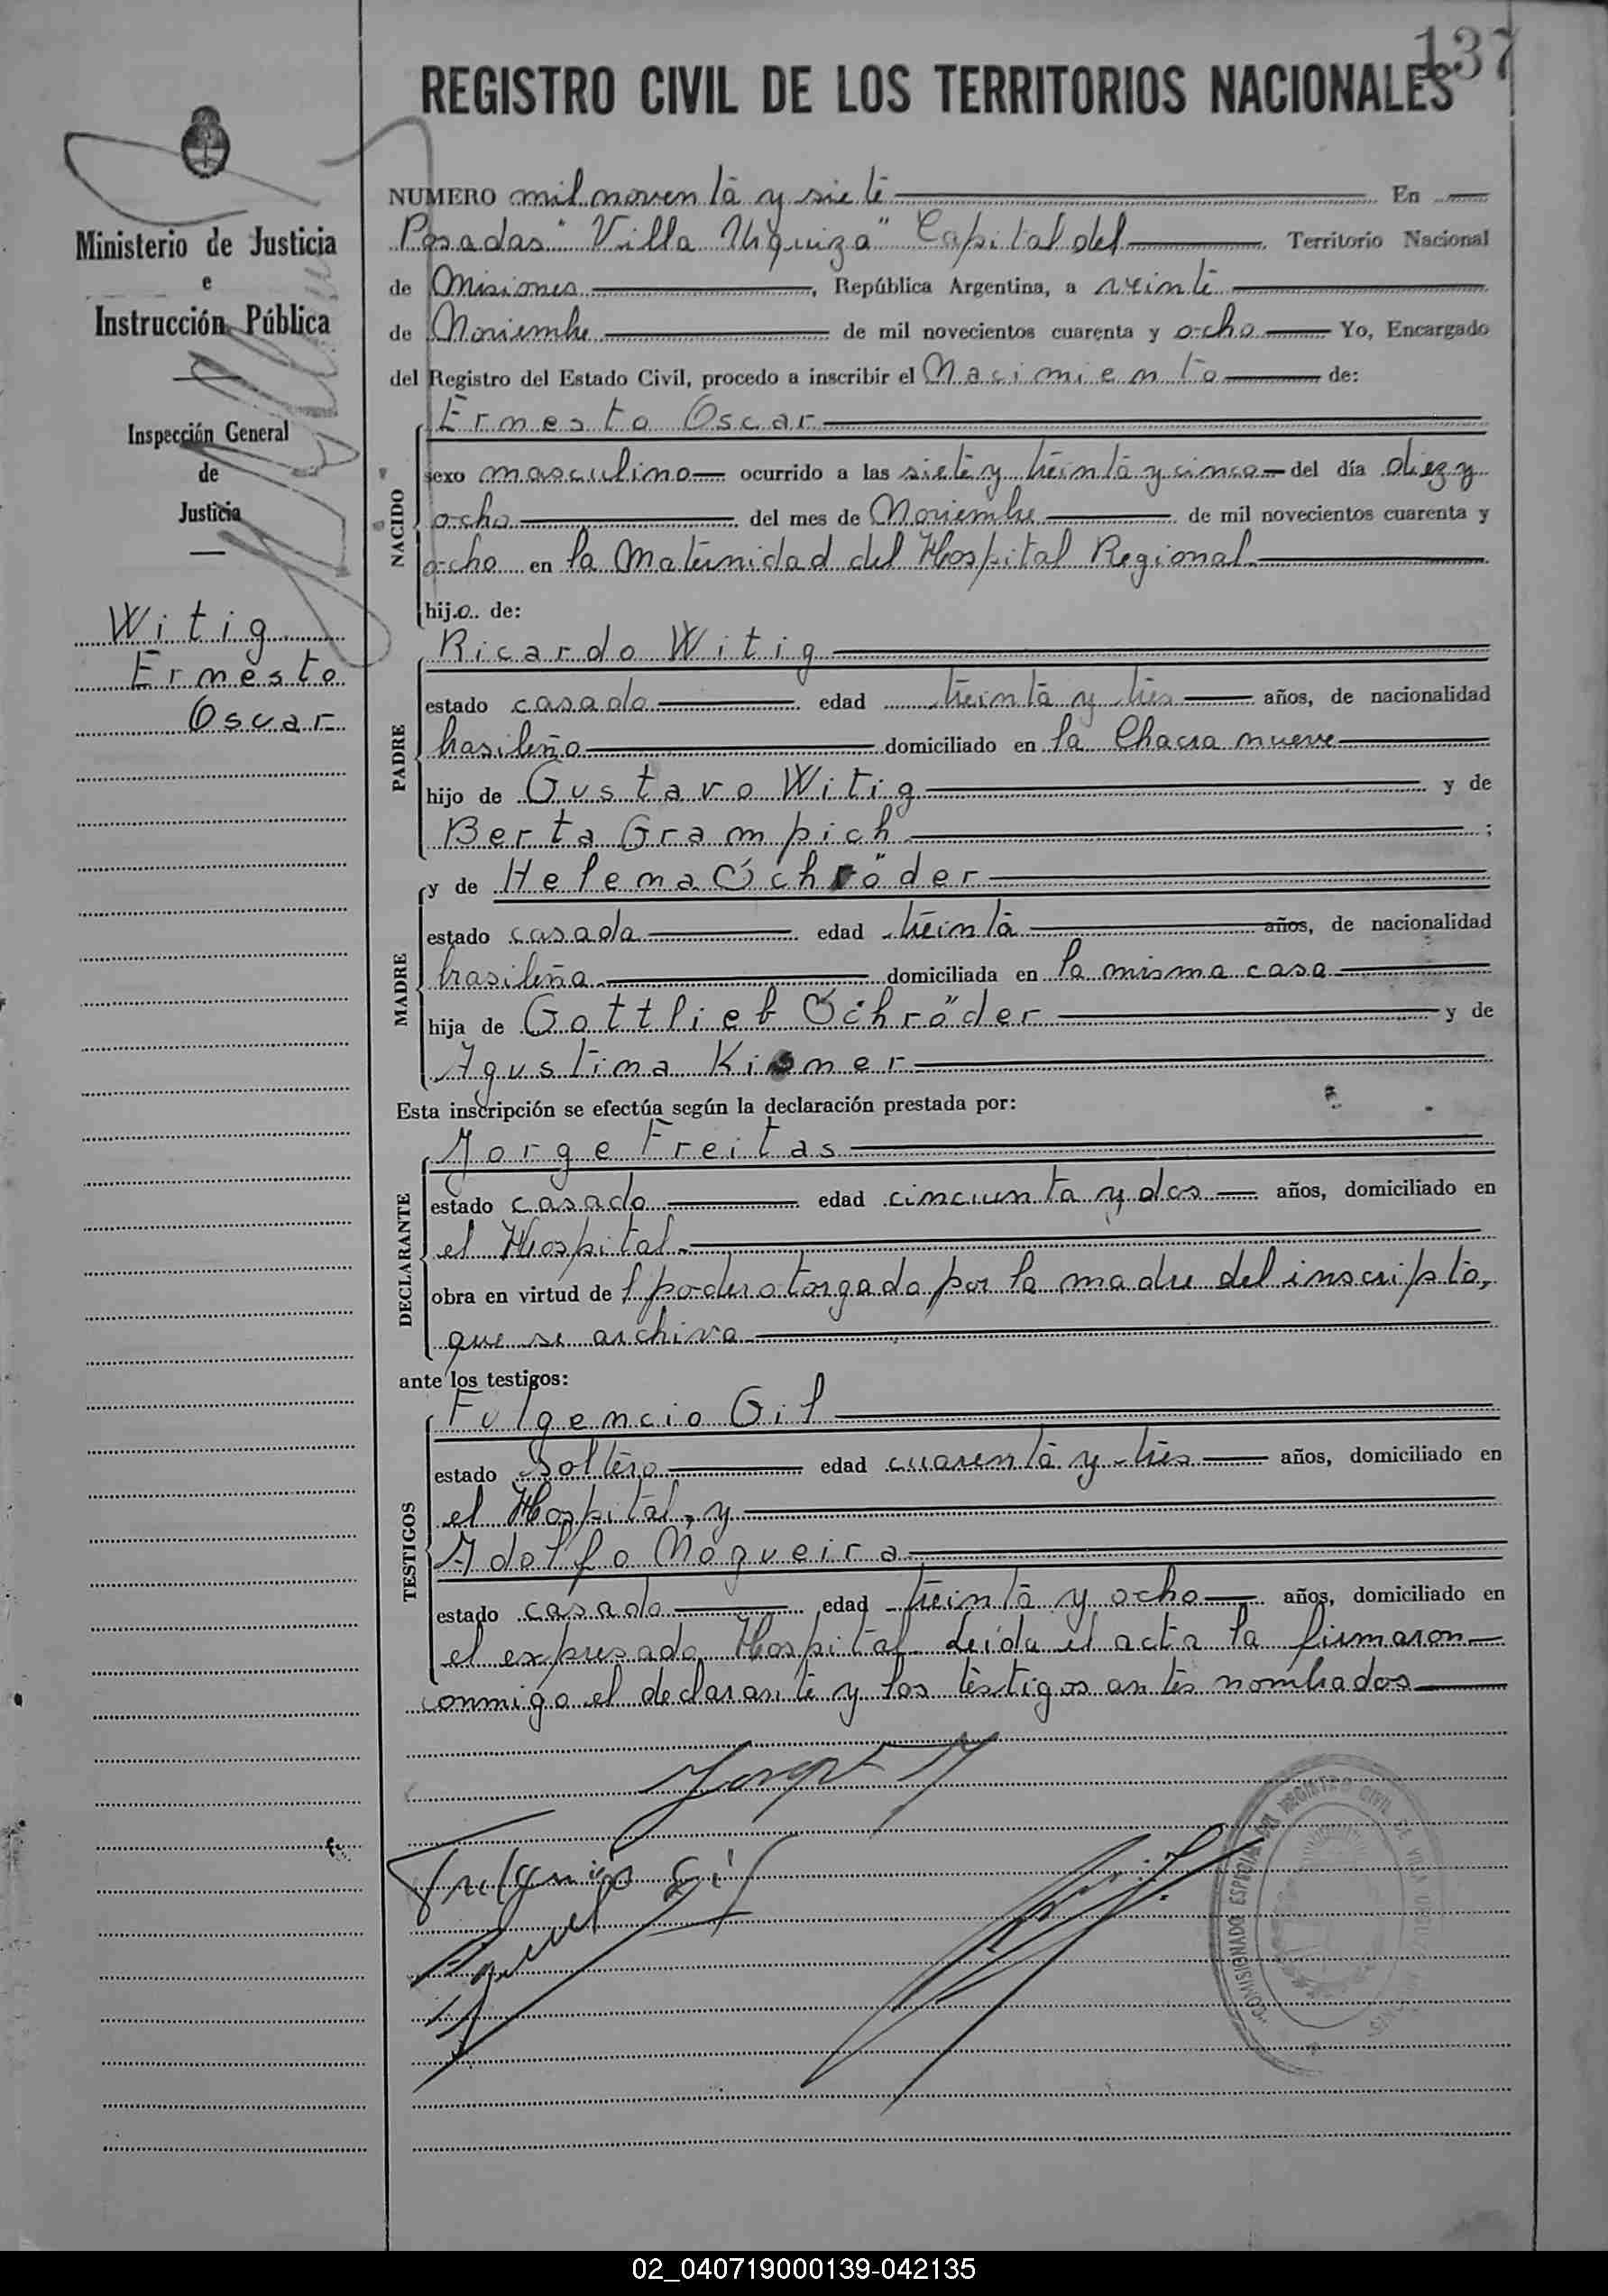 137
REGISTRO CIVIL DE LOS TERRITORIOS NACIONALES
Ministerio de Justicia
e
Instrucción Pública
Inspección General
de
Justicia
Witig
Ernesto
Oscar
NUMERO mil noventa y siete En
Posadas "Villa Urquiza" Capital del Territorio Nacional
de Misiones, República Argentina, a veinte
de Noviembre de mil novecientos cuarenta y ocho Yo, Encargado
del Registro del Estado Civil, procedo a inscribir el Nacimiento de:
NACIDO
Ernesto Oscar
sexo masculino ocurrido a las siete y treinta y cinco del día diez y
ocho del mes de Noviembre de mil novecientos cuarenta y
ocho en la Maternidad del Hospital Regional
hijo de:
PADRE
Ricardo Witig
estado casado edad treinta y tres años, de nacionalidad
brasileño domiciliado en la Chacra nueve
hijo de Gustavo Witig y de
Berta Grampich;
MADRE
y de Helena Schröder
estado casada edad treinta años, de nacionalidad
brasileña domiciliada en la misma casa
hija de Gottlieb Schröder y de
Agustina
Esta inscripción se efectúa según la declaración prestada por:
DECLARANTE
Jorge Freitas
estado casado edad cincuenta y dos años, domiciliado en
el Hospital
obra en virtud del poder otorgado por la madre del inscripto,
que se archiva
ante los testigos:
TESTIGOS
Fulgencio Gil
estado soltero edad cuarenta y tres años, domiciliado en
el Hospital, y
Adolfo Nogueira
estado casado edad treinta y ocho años, domiciliado en
el expresado Hospital. Leída el acta la firmaron
conmigo el declarante y los testigos antes nombrados
Fulgencio Gil
COMISIONADO ESPECIAL DEL REGISTRO CIVIL DE VILLA URQUIZA
02_040719000139-042135